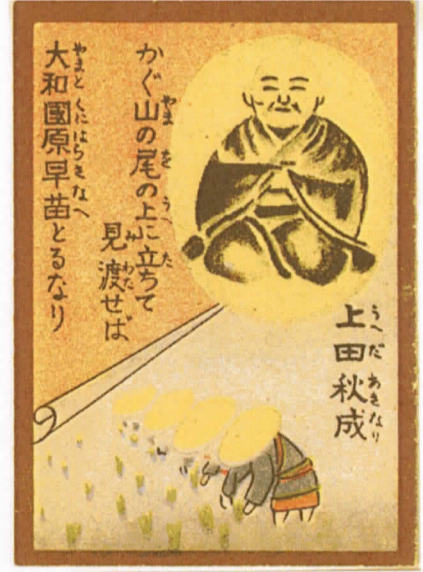 上田秋成
うへだ あきなり
かぐ山の尾の上に立ちて
やま を うへ た
見渡せば
み わた
大和國原早苗とるなり
やまと くにはらさなへ